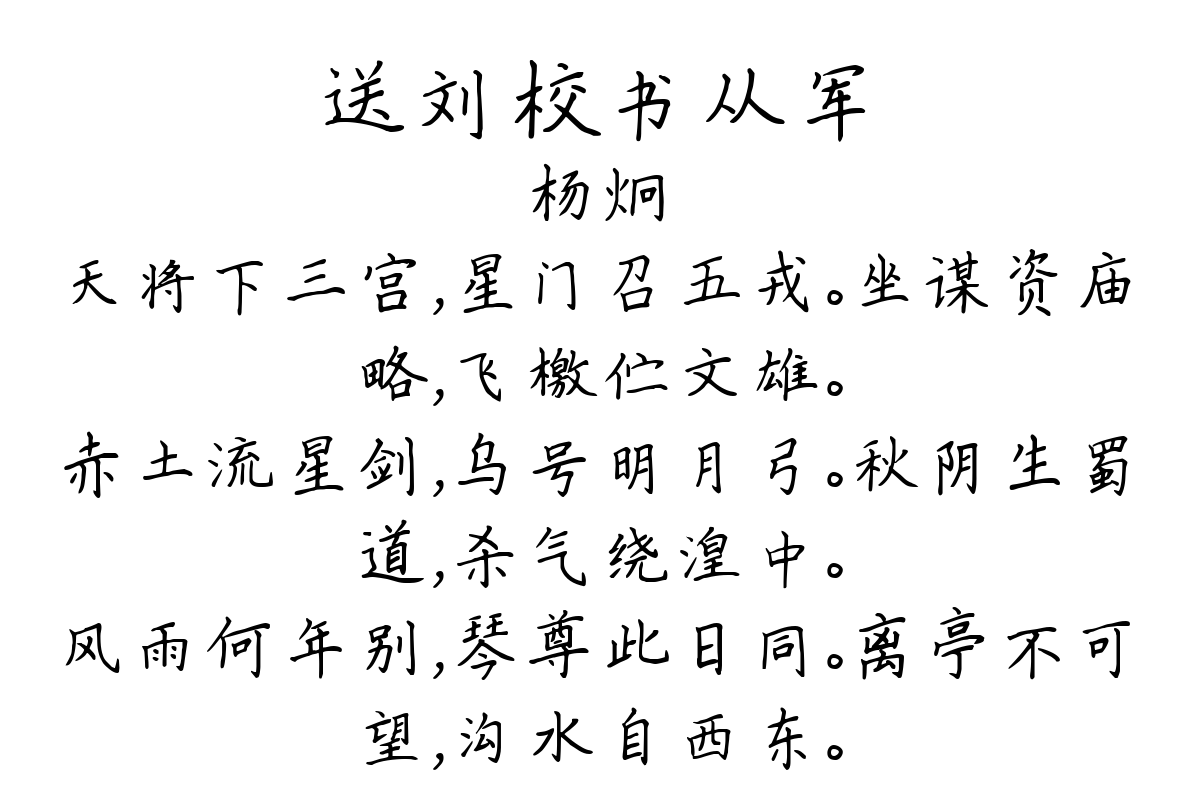 送刘校书从军
杨炯
天将下三宫,星门召五戎。坐谋资庙
略,飞檄伫文雄。
赤土流星剑,乌号明月弓。秋阴生蜀
道,杀气绕湟中。
风雨何年别,琴尊此日同。离亭不可
望,沟水自西东。